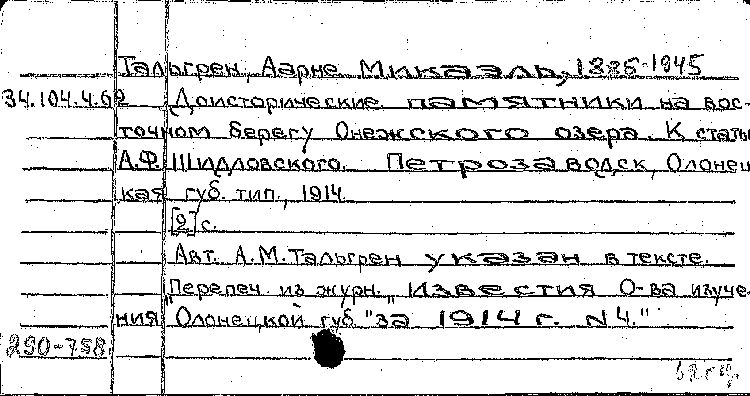 Тальгрен, Аарне Микаэль, 1885-1945
34.104.4.69 Доисторические памятники на вос-
точном берегу Онежского озера. К стать
А.Ф. Шидловского. Петрозаводск, Олонец
кая губ. тип., 1914.
[2] с.
Авт. А.М. Тальгрен указан в тексте.
"Перепеч. из журн. "Известия О-ва изуче-
ния Олонецкой губ." за 1914 г. N 4."
290-758